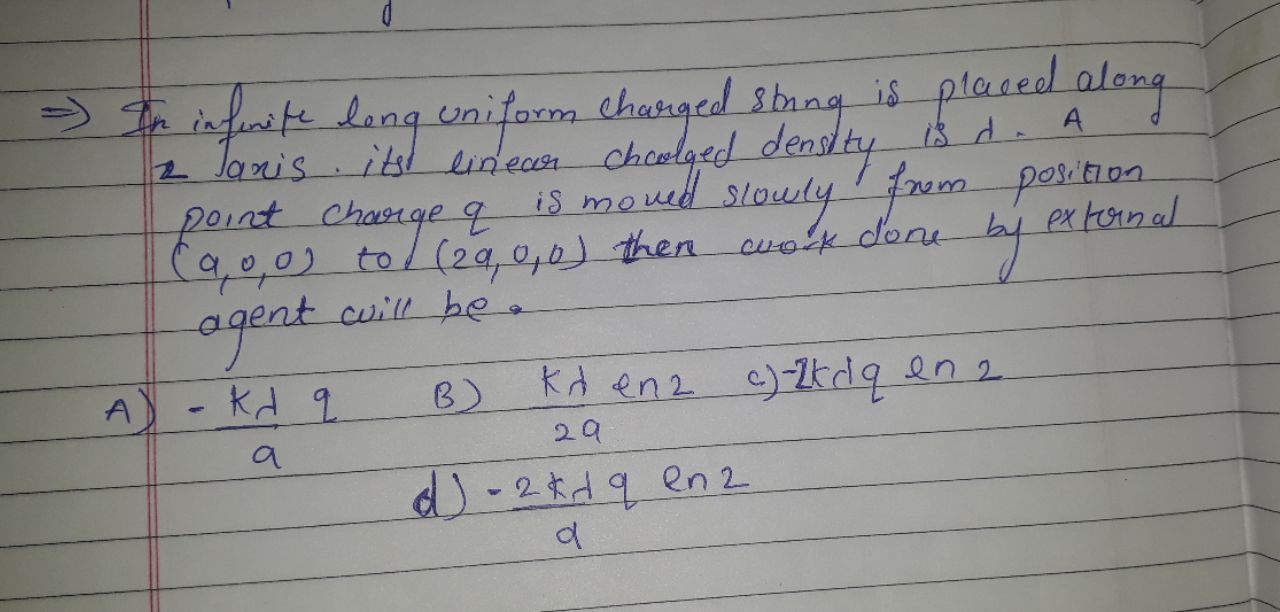 ⇒ In infinite long uniform charged string is placed along
z axis. its linear charged density is λ. A
point charge q is moved slowly from position
(a,0,0) to (2a,0,0) then work done by external
agent will be.
A) - Kλ q / a B) Kλ ln 2 / 2a c) -2Kλq ln 2
d) - 2Kλ q ln 2 / a